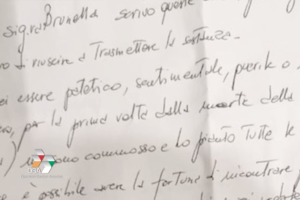 sig.ra Brunella scrivo queste
di riuscire a trasmettere la sostanza.
ei essere patetico, sentimentale, puerile o
per la prima volta della morte della
) mi sono commosso e ho pianto tutte le
è possibile avere la fortuna di incontrare